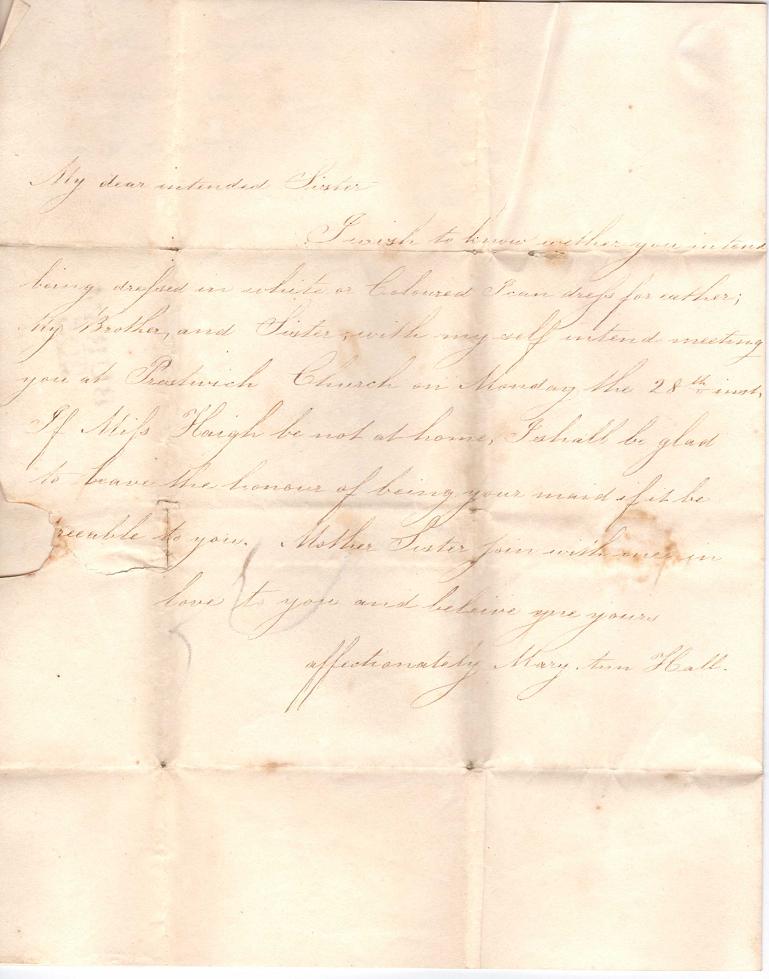 My dear intended Sister
I wish to know wether you intend
being dressed in white or Coloured I can dress for eather;
My Brother, and Sister, with my self intend meeting
you at Prestwich Church on Monday the 28th inst,
If Miss Haigh be not at home, I shall be glad
to have the honour of being your maid if it be
reeable to you. Mother Sister join with me in
love to you and beleive me yours
affectionately Mary Ann Hall.